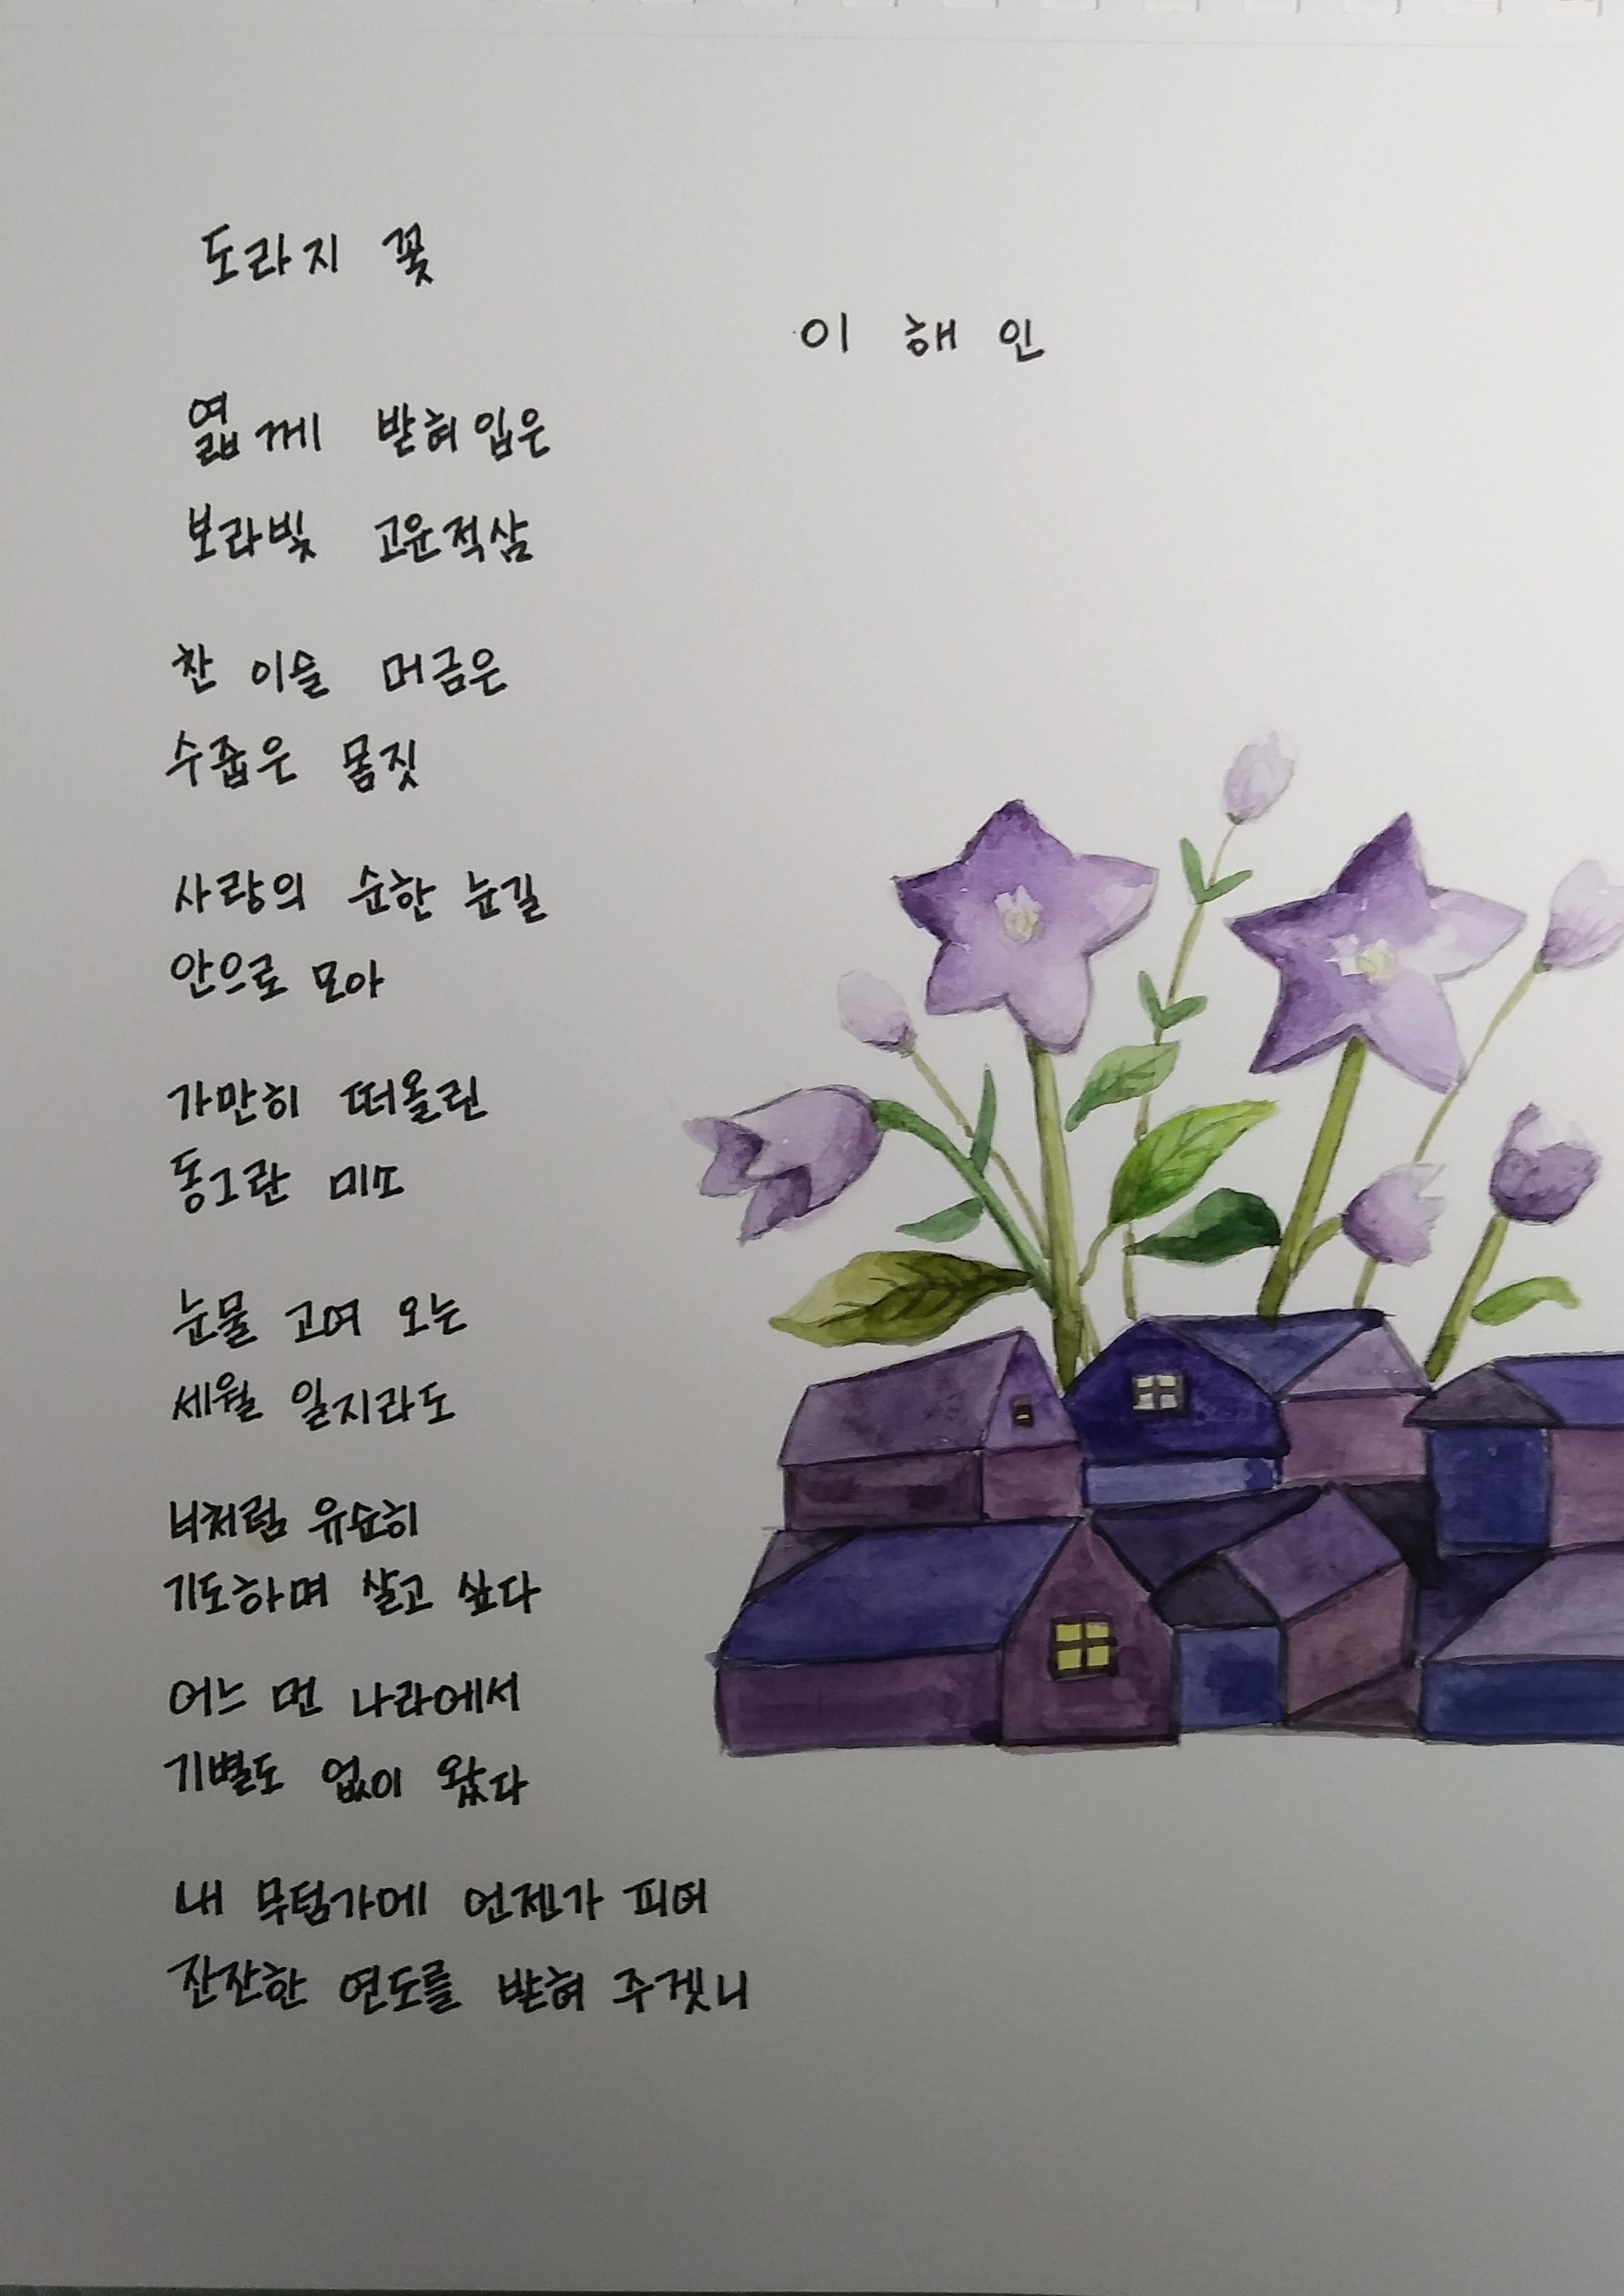 도라지 꽃
이 해 인
엷게 받혀입은
보라빛 고운적삼
찬 이슬 머금은
수줍은 몸짓
사랑의 순한 눈길
안으로 모아
가만히 떠올린
동그란 미소
눈물 고여 오는
세월 일지라도
너처럼 유순히
기도하며 살고 싶다
어느 먼 나라에서
기별도 없이 왔다
내 무덤가에 언젠가 피어
잔잔한 연도를 받혀 주겠니